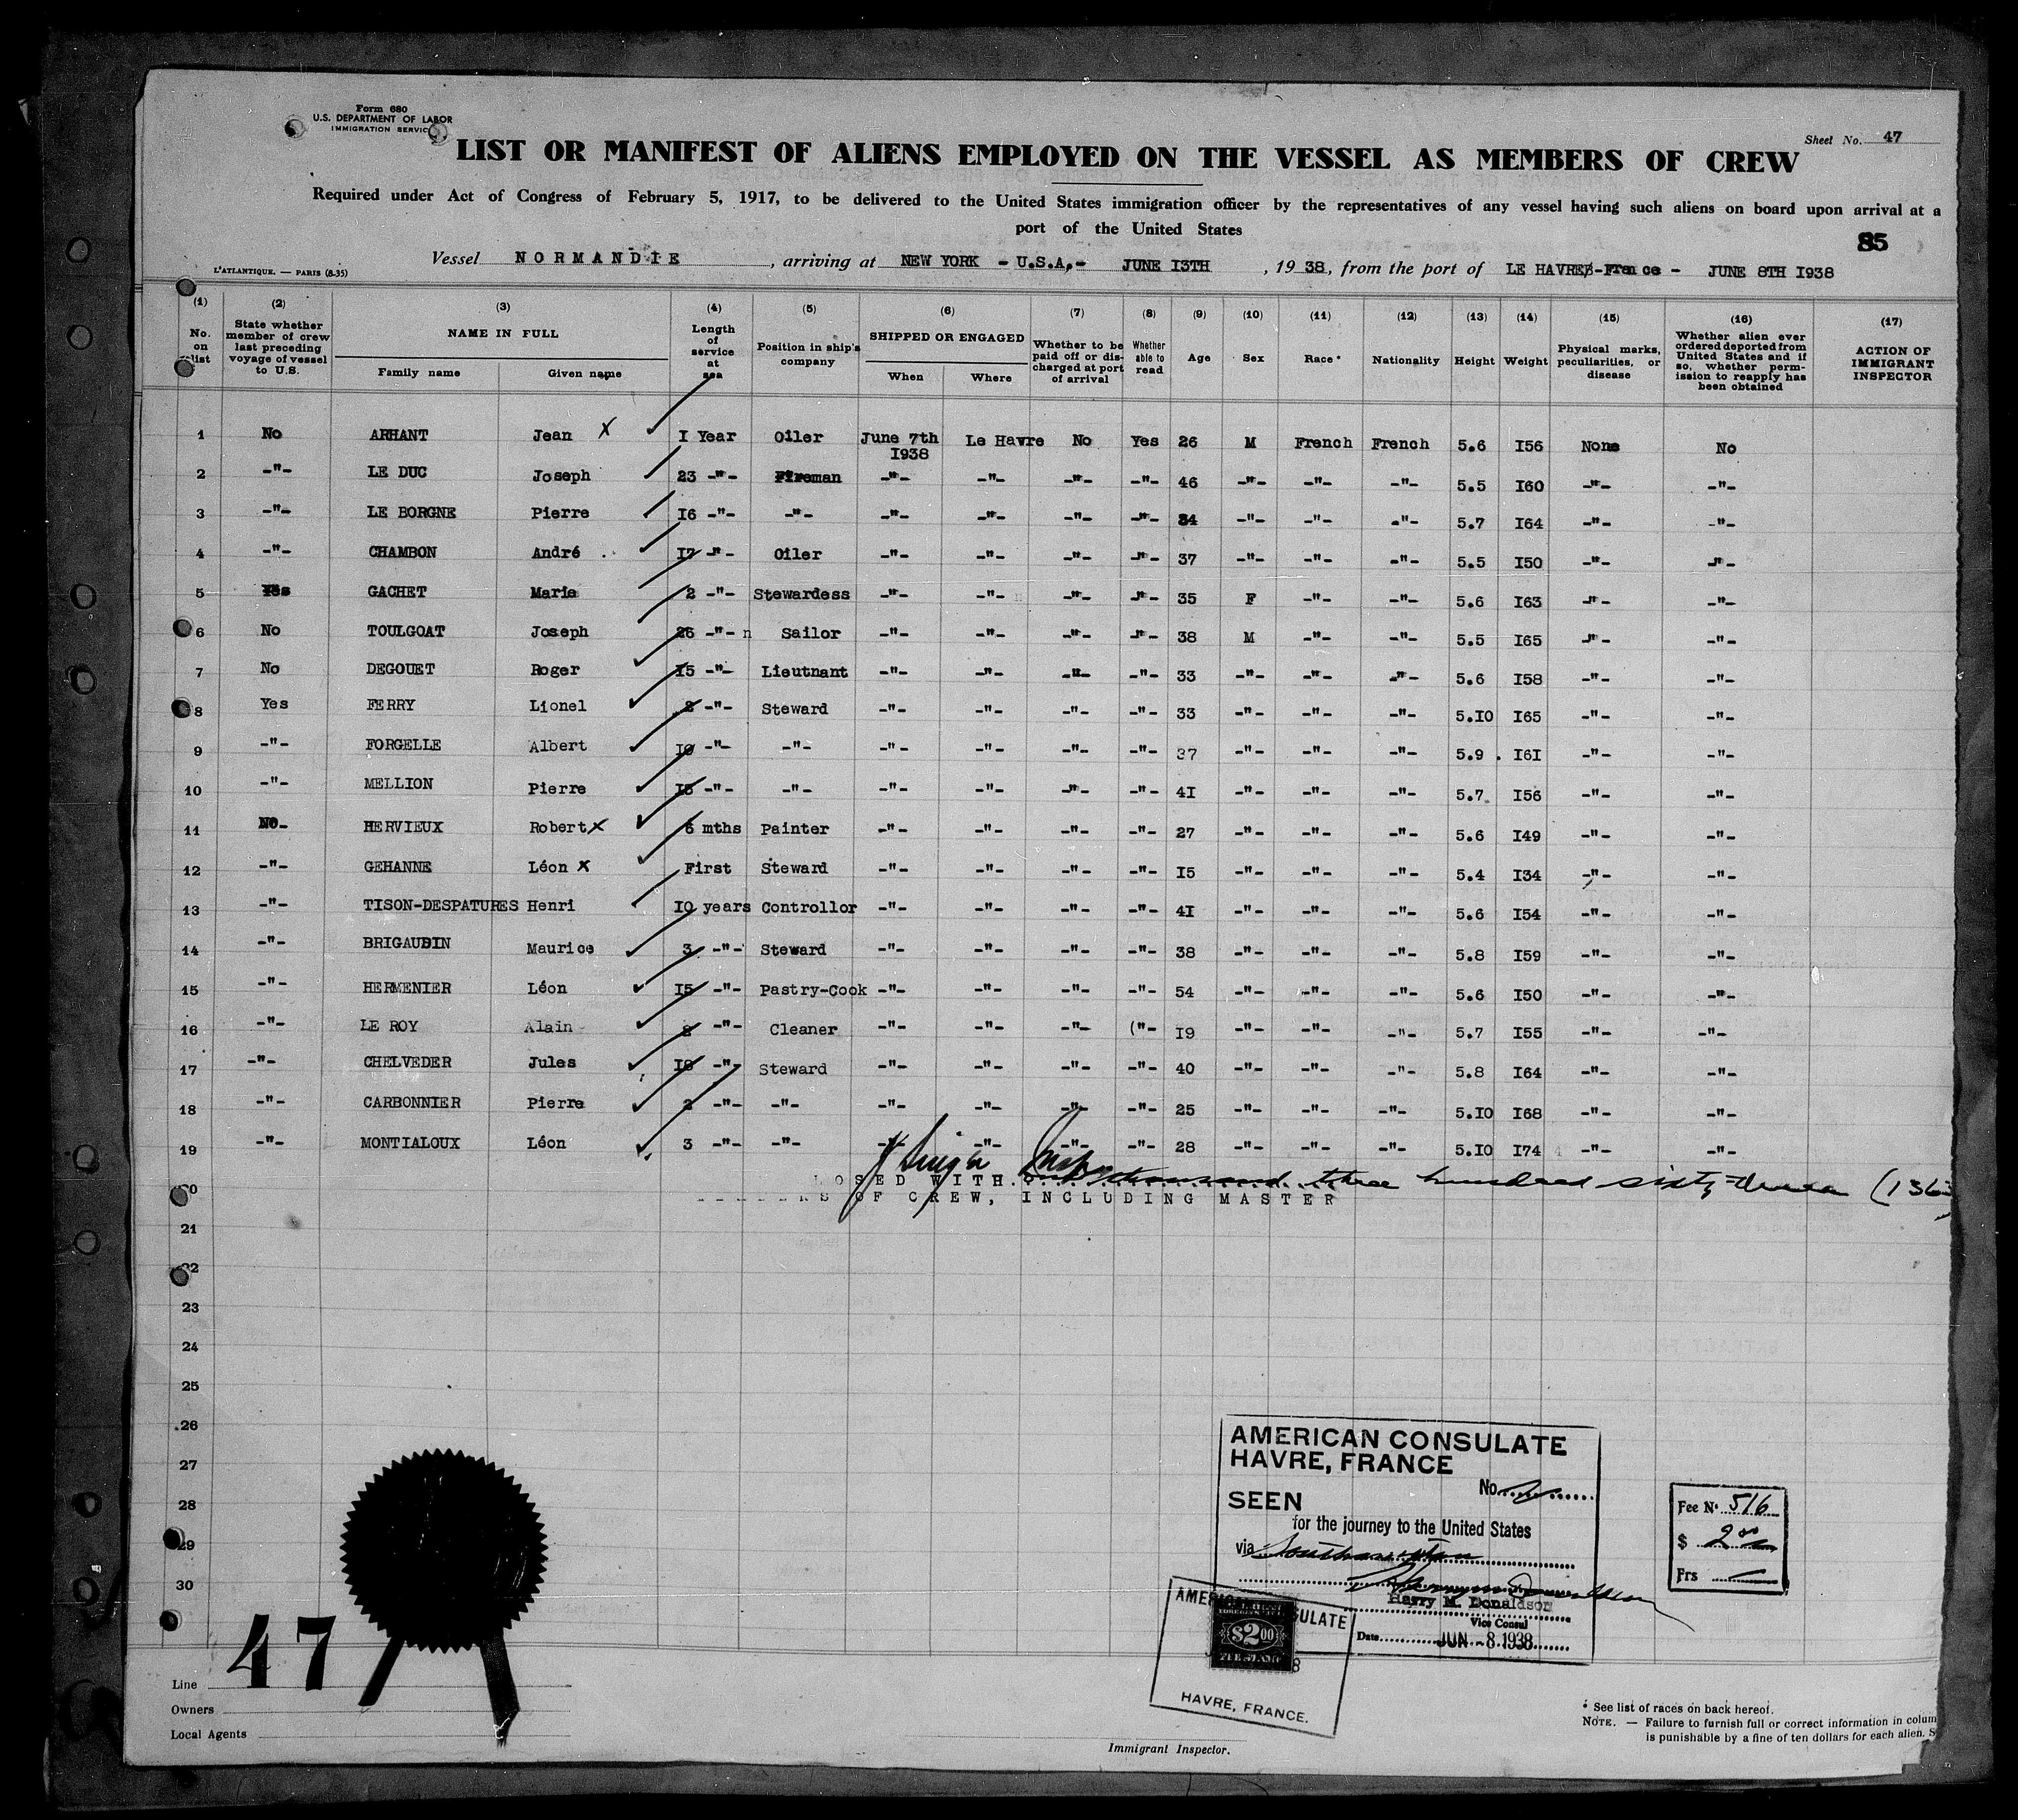 Form 680
U.S. DEPARTMENT OF LABOR
IMMIGRATION SERVICE
Sheet No. 47
LIST OR MANIFEST OF ALIENS EMPLOYED ON THE VESSEL AS MEMBERS OF CREW
Required under Act of Congress of February 5, 1917, to be delivered to the United States immigration officer by the representatives of any vessel having such aliens on board upon arrival at a
port of the United States
85
L'ATLANTIQUE. — PARIS (8-35)
Vessel NORMANDIE, arriving at NEW YORK - U.S.A,- JUNE I3TH, 19 38, from the port of LE HAVRE -France - JUNE 8TH I938
(1) (2) (3) (4) (5) (6) (7) (8) (9) (10) (11) (12) (13) (14) (15) (16) (17)
No. on list State whether member of crew last preceding voyage of vessel to U.S. NAME IN FULL Family name Given name Length of service at sea Position in ship's company SHIPPED OR ENGAGED When Where Whether to be paid off or discharged at port of arrival Whether able to read Age Sex Race * Nationality Height Weight Physical marks, peculiarities, or disease Whether alien ever ordered deported from United States and if so, whether permission to reapply has been obtained ACTION OF IMMIGRANT INSPECTOR
1 No ARHANT Jean X I Year Oiler June 7th I938 Le Havre No Yes 26 M French French 5.6 I56 None No
2 -"- LE DUC Joseph 23 -"- Fireman -"- -"- -"- -"- 46 -"- -"- -"- 5.5 I60 -"- -"-
3 -"- LE BORGNE Pierre I6 -"- -"- -"- -"- -"- -"- 34 -"- -"- -"- 5.7 I64 -"- -"-
4 -"- CHAMBON André I7 -"- Oiler -"- -"- -"- -"- 37 -"- -"- -"- 5.5 I50 -"- -"-
5 Yes GACHET Marie 2 -"- Stewardess -"- -"- -"- -"- 35 F -"- -"- 5.6 I63 -"- -"-
6 No TOULGOAT Joseph 26 -"- n Sailor -"- -"- -"- -"- 38 M -"- -"- 5.5 I65 -"- -"-
7 No DEGOUET Roger I5 -"- Lieutnant -"- -"- -"- -"- 33 -"- -"- -"- 5.6 I58 -"- -"-
8 Yes FERRY Lionel 2 -"- Steward -"- -"- -"- -"- 33 -"- -"- -"- 5.I0 I65 -"- -"-
9 -"- FORGELLE Albert I0 -"- -"- -"- -"- -"- -"- 37 -"- -"- -"- 5.9 . I6I -"- -"-
10 -"- MELLION Pierre I5 -"- -"- -"- -"- -"- -"- 4I -"- -"- -"- 5.7 I56 -"- -"-
11 NO- HERVIEUX Robert X 6 mths Painter -"- -"- -"- -"- 27 -"- -"- -"- 5.6 I49 -"- -"-
12 -"- GEHANNE Léon X First Steward -"- -"- -"- -"- I5 -"- -"- -"- 5.4 I34 -"- -"-
13 -"- TISON-DESPATURES Henri I0 years Controllor -"- -"- -"- -"- 4I -"- -"- -"- 5.6 I54 -"- -"-
14 -"- BRIGAUDIN Maurice 3 -"- Steward -"- -"- -"- -"- 38 -"- -"- -"- 5.8 I59 -"- -"-
15 -"- HERMENIER Léon I5 -"- Pastry-Cook -"- -"- -"- -"- 54 -"- -"- -"- 5.6 I50 -"- -"-
16 -"- LE ROY Alain -"- Cleaner -"- -"- -"- ("- I9 -"- -"- -"- 5.7 I55 -"- -"-
17 -"- CHELVEDER Jules I8 -"- Steward -"- -"- -"- -"- 40 -"- -"- -"- 5.8 I64 -"- -"-
18 -"- CARBONNIER Pierre 2 -"- -"- -"- -"- -"- -"- 25 -"- -"- -"- 5.I0 I68 -"- -"-
19 -"- MONTIALOUX Léon 3 -"- -"- -"- -"- -"- -"- 28 -"- -"- -"- 5.I0 I74 -"- -"-
20 OSED WITH thousand three hundred sixty three (1363
OF CREW, INCLUDING MASTER
21
22
23
24
25
26
27
28
29
30
AMERICAN CONSULATE
HAVRE, FRANCE
No.
SEEN
for the journey to the United States
via Southampton
Harry M. Donaldson
Vice Consul
Date JUN - 8 1938
Fee No. 516
$ 2.00
Frs
AMERICAN CONSULATE
$2.00
FEE STAMP
HAVRE, FRANCE.
47
Line
Owners
Local Agents
Immigrant Inspector.
* See list of races on back hereof.
NOTE. — Failure to furnish full or correct information in colum
is punishable by a fine of ten dollars for each alien. S